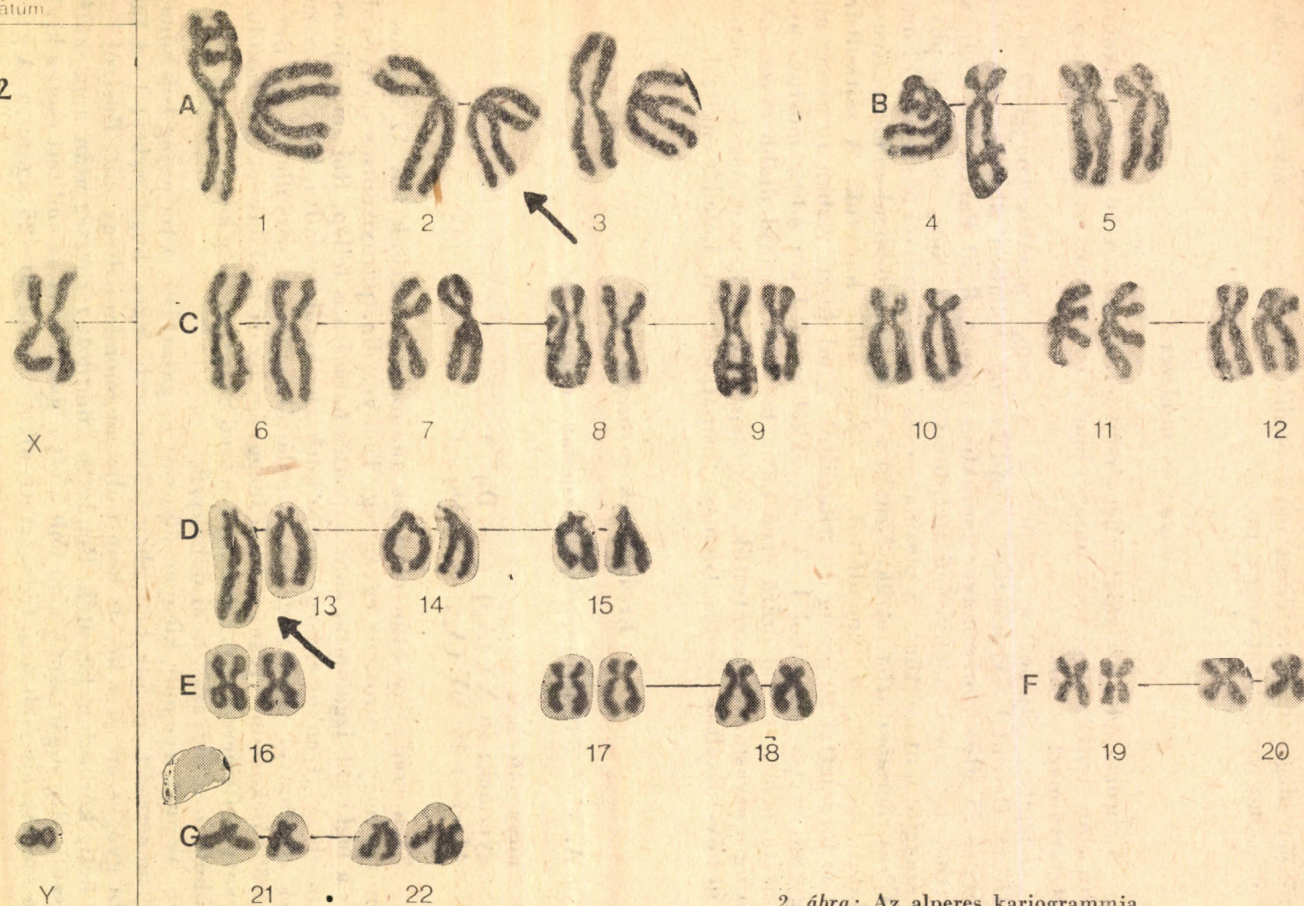 átum
2
A B
1 2 3 4 5
C
X 6 7 8 9 10 11 12
D
13 14 15
E F
16 17 18 19 20
G
Y 21 22
2. ábra: Az alperes kariogrammja